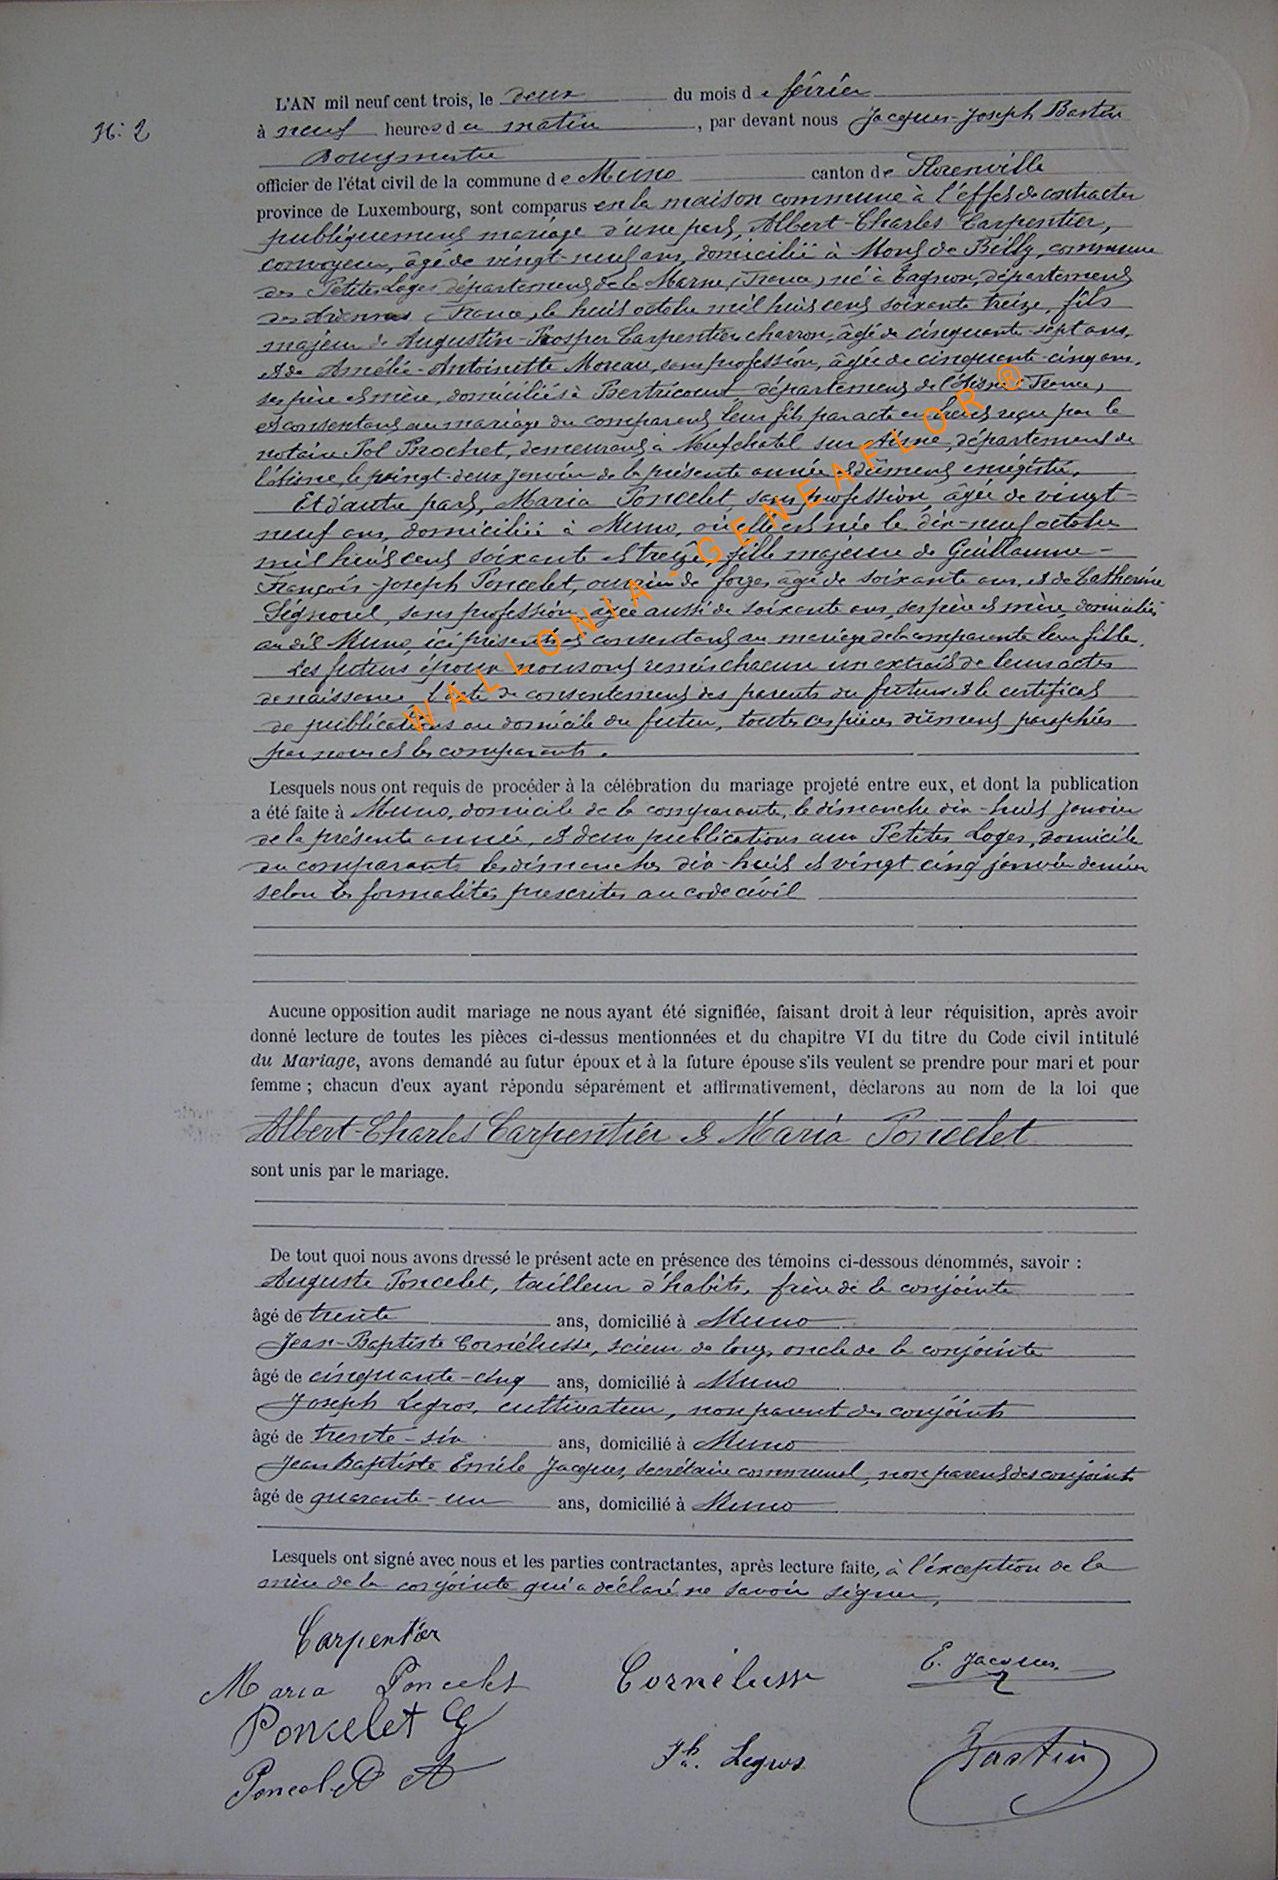 N: 2
L'AN mil neuf cent trois, le deux du mois de février
à neuf heures du matin, par devant nous Jacques-Joseph Bastin
Bourgmestre
officier de l'état civil de la commune de Muno canton de Florenville
province de Luxembourg, sont comparus en la maison commune à l'effet de contracter
publiquement mariage d'une part, Albert-Charles Carpentier,
convoyeur, âgé de vingt-neuf ans, domicilié à Mont de Billy, commune
des Petites Loges département de la Marne (France) né à Tagnon, département
des Ardennes (France) le huit octobre mil huit cent soixante treize, fils
majeur de Augustin-Prosper Carpentier charron, âgé de cinquante-sept ans,
et de Amélie-Antoinette Moreau, sans profession, âgée de cinquante-cinq ans,
ses père et mère, domiciliés à Bertricourt département de l'Aisne (France)
et consentant au mariage du comparant leur fils par acte en brevet reçu par le
notaire Pol Brochet, demeurant à Neufchatel sur Aisne, département de
l'Aisne, le vingt-deux janvier de la présente année et dûment enregistré.
Et d'autre part, Maria Poncelet, sans profession, âgée de vingt-
neuf ans, domiciliée à Muno, où elle est née le dix-neuf octobre
mil huit cent soixante et treize, fille majeure de Guillaume-
François-Joseph Poncelet, ouvrier de forges âgé de soixante ans, et de Catherine
Lignoul, sans profession, âgée aussi de soixante ans, ses père et mère domiciliés
au dit Muno, ici présents et consentant au mariage de la comparante leur fille.
Les futurs époux nous ont remis chacun un extrait de leurs actes
de naissance, l'acte de consentement des parents du futur et le certificat
de publications au domicile du futur, toutes ces pièces dûment paraphées
par nous et les comparants.
Lesquels nous ont requis de procéder à la célébration du mariage projeté entre eux, et dont la publication
a été faite à Muno, domicile de la comparante, le dimanche dix-huit janvier
de la présente année, et deux publications aux Petites Loges, domicile
du comparant les dimanches dix-huit et vingt cinq janvier dernier
selon les formalités prescrites au code civil
Aucune opposition audit mariage ne nous ayant été signifiée, faisant droit à leur réquisition, après avoir
donné lecture de toutes les pièces ci-dessus mentionnées et du chapitre VI du titre du Code civil intitulé
du Mariage, avons demandé au futur époux et à la future épouse s'ils veulent se prendre pour mari et pour
femme ; chacun d'eux ayant répondu séparément et affirmativement, déclarons au nom de la loi que
Albert-Charles Carpentier et Maria Poncelet
sont unis par le mariage.
De tout quoi nous avons dressé le présent acte en présence des témoins ci-dessous dénommés, savoir :
Auguste Poncelet, tailleur d'habits, frère de la conjointe
âgé de trente ans, domicilié à Muno
Jean-Baptiste Cornélusse, scieur de long, oncle de la conjointe
âgé de cinquante-cinq ans, domicilié à Muno
Joseph Legros, cultivateur, non parent des conjoints
âgé de trente-six ans, domicilié à Muno
Jean Baptiste Emile Jacques, secrétaire communal, non parent des conjoints
âgé de quarante-un ans, domicilié à Muno
Lesquels ont signé avec nous et les parties contractantes, après lecture faite, à l'exception de la
mère de la conjointe qui a déclaré ne savoir signer,
Carpentier
Maria Poncelet Cornélusse E. Jacques
Poncelet G
Poncelet A Jh. Legros Bastin
WALLONIA-GENEAFLOR ®